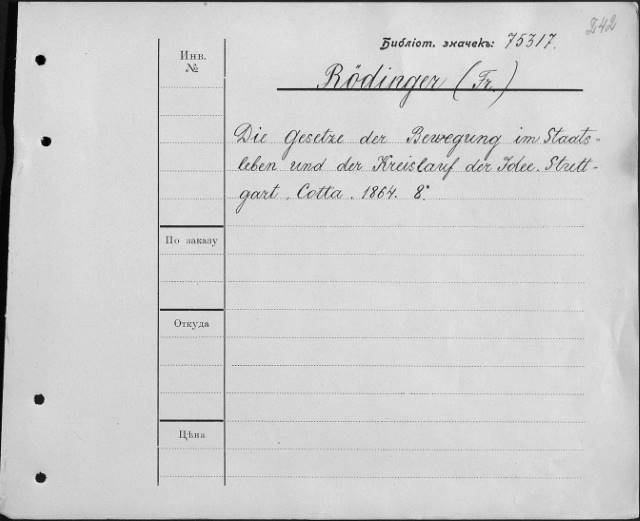 242
Библіот. значекъ: 75317.
Инв.
№
Rödinger (Fr.)
Die Gesetze der Bewegung im Staats-
leben und der Kreislauf der Idee. Stutt-
gart. Cotta. 1864. 8°
По заказу
Откуда
Цѣна